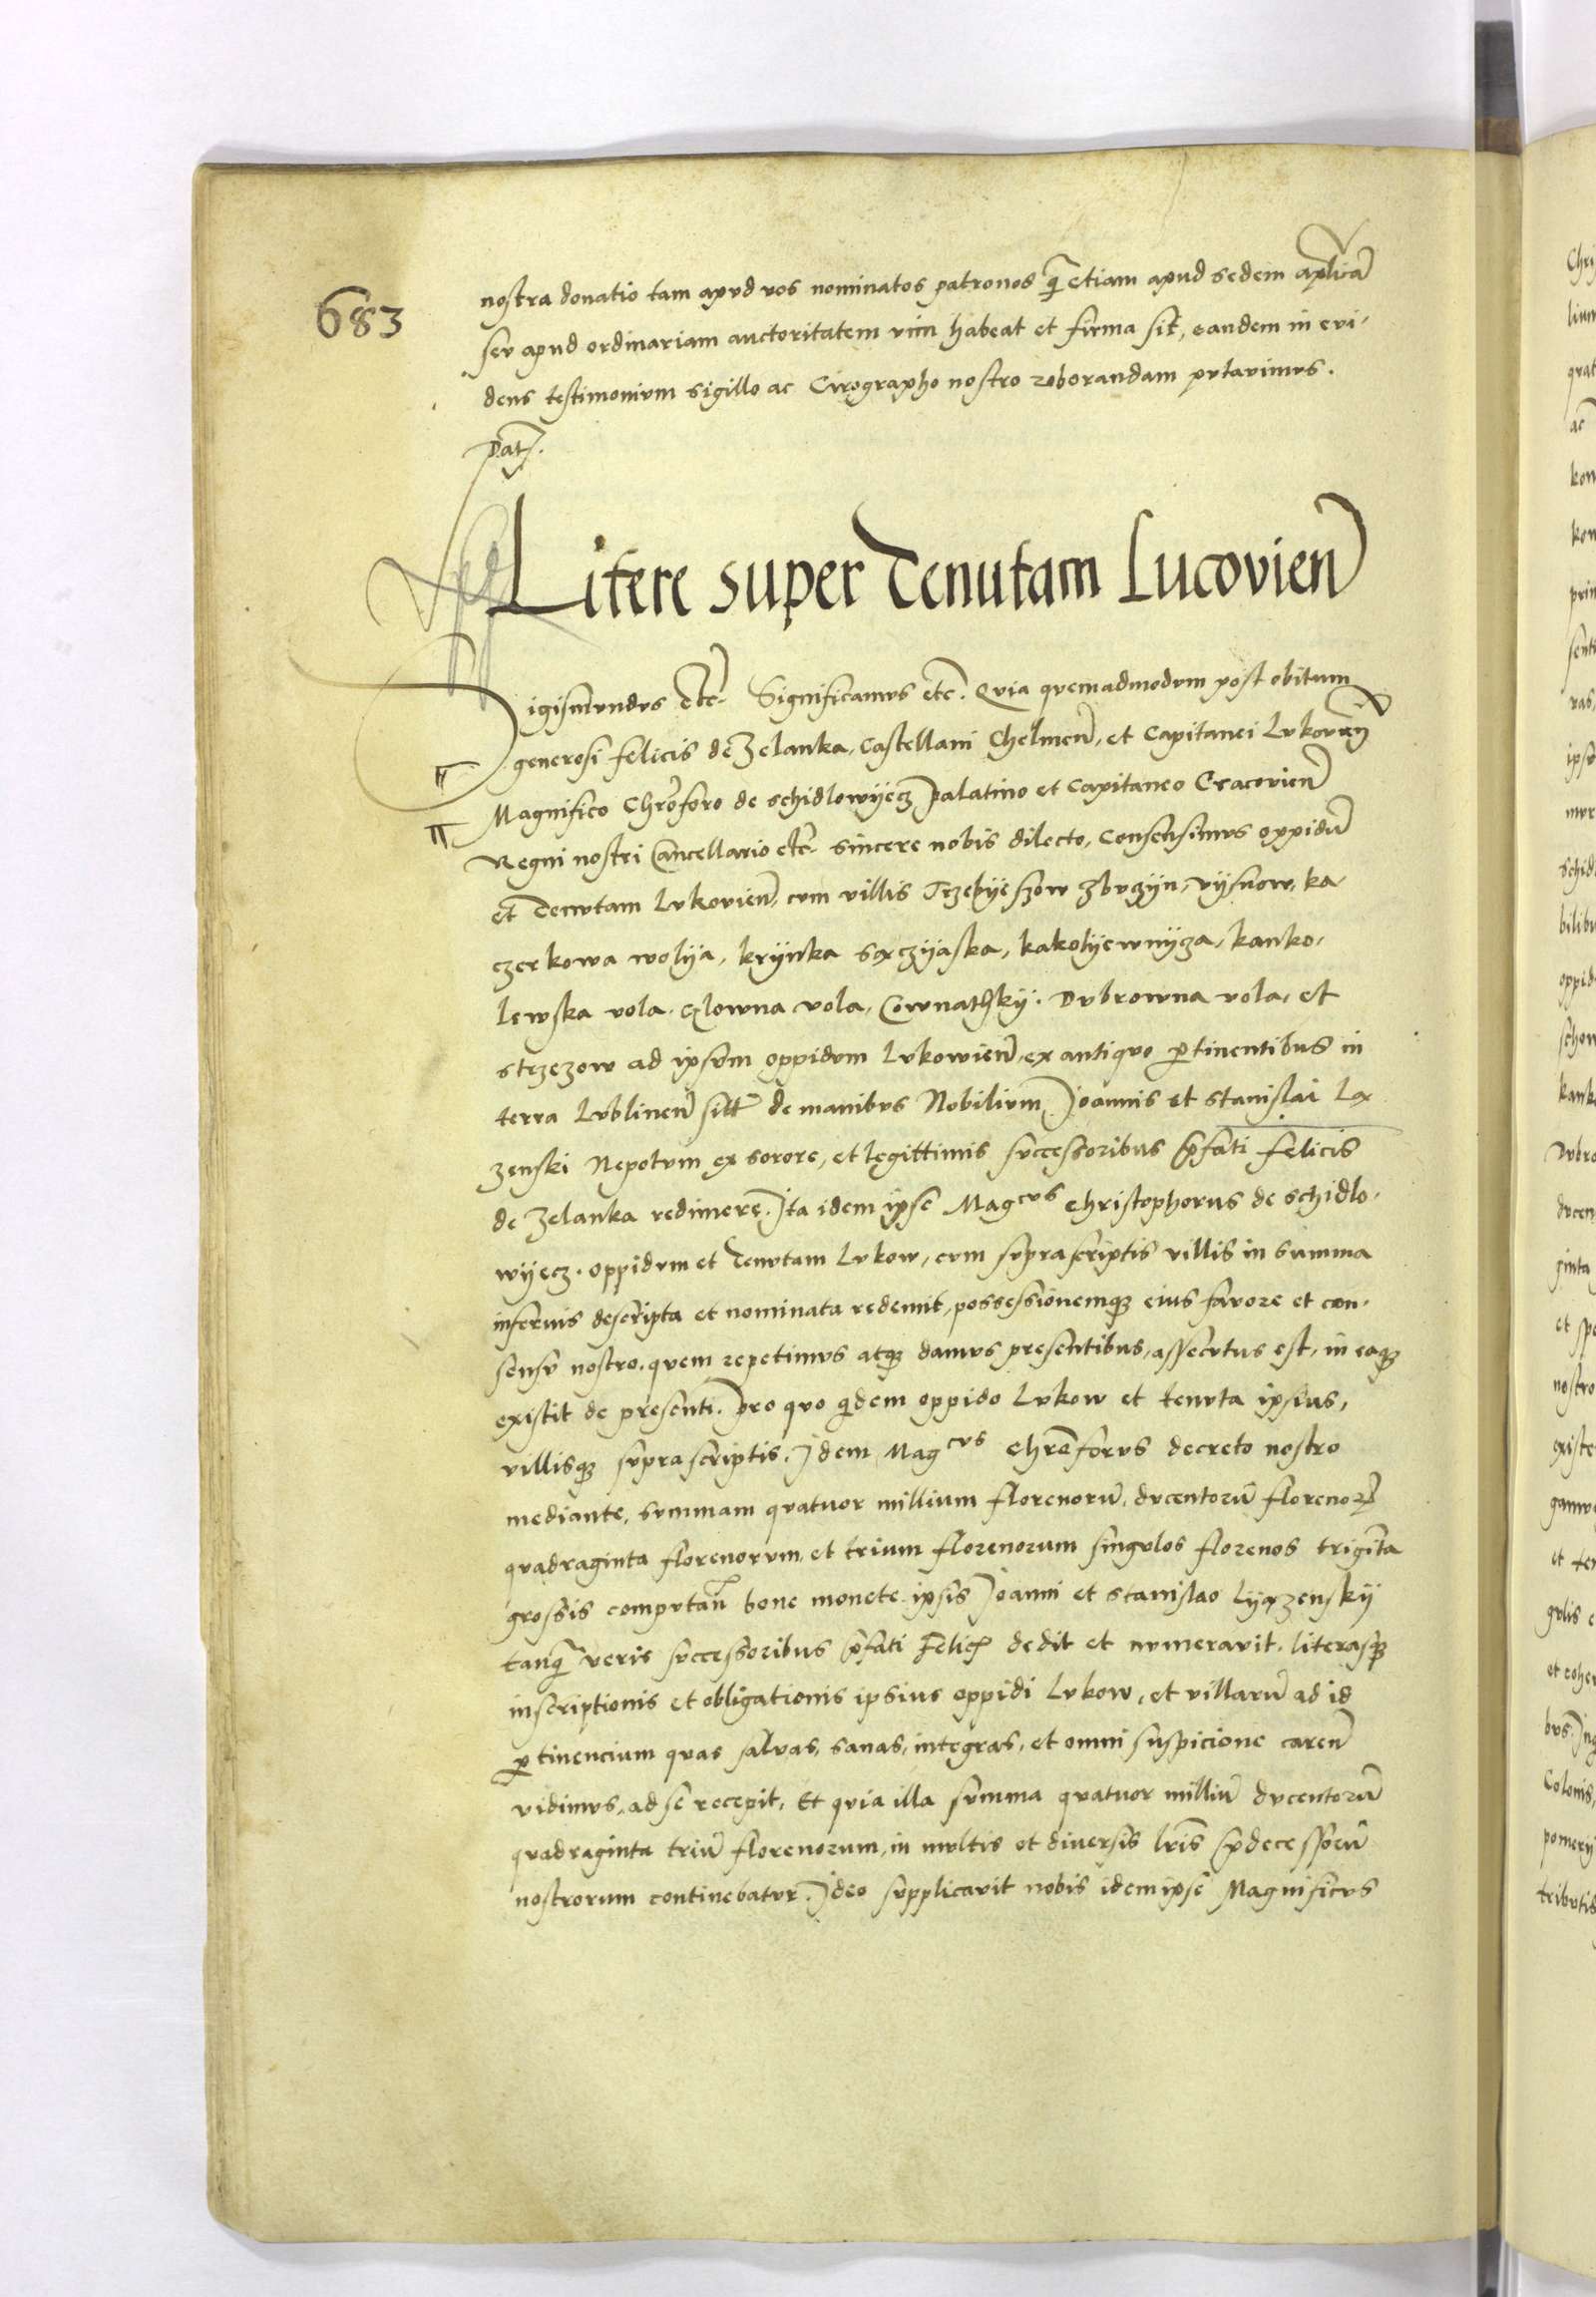 683
nostra donatio tam apud vos nominatos patronos q̃ etiam apud sedem aplicã
seu apud ordinariam auctoritatem vim habeat et firma sit, eandem in evi-
dens testimonium sigillo ac Cirographo nostro roborandam putavimus.
Dat.
Litere super Tenutam Lucovieñ
Sigismundus etc̃. Significamus etc̃. Quia quemadmodum post obitum
generosi Felicis de Zelanka, Castellani Chelmeñ, et Capitanei Lukovieñ
Magnifico Chr̃oforo de Schidlowyecz Palatino et Capitaneo Cracovieñ
Regni nostri Cancellario etc̃. sincere nobis dilecto, Consensimus oppidũ
et Tenutam Lukovieñ, cum villis Trzebyeszow Zbuczyn, Vysnow, ka-
czerkowa wolya, krynka kakolyewnycza, kanko-
lewska vola, vola, Cownathky. Dubrowna vola, et
strzezow ad ipsum oppidum Lukowieñ, ex antiquo ꝑtinentibus in
terra Lublineñ sitt̃ de manibus Nobilium Joannis et Stanislai Lax
zenski Nepotum ex sorore, et legittimis successoribus p̃fati Felicis
de Zelanka redimere. Ita idem ipse Magcus Christophorus de Schidlo-
wyecz. oppidum et Tenutam Lukow, cum suprascriptis villis in summa
inferius descripta et nominata redemit, possessionemqꝫ eius favore et con-
sensu nostro, quem repetimus atqꝫ damus presentibus, assecutus est, in eaqꝫ
existit de presenti. Pro quo q̃dem oppido Lukow et tenuta ipsius,
villisqꝫ suprascriptis. Idem Magcus Chr̃oforus decreto nostro
mediante, summam quatuor millium florenorũ, ducentorũ florenoꝝ
quadraginta florenorum, et trium florenorum singulos florenos triginta
grossis computañ bone monete ipsis Joanni et Stanislao Lyaxzensky
tanq̃ veris successoribus p̃fati Felicꝭ dedit et numeravit. literasqꝫ
inscriptionis et obligationis ipsius oppidi Lukow, et villarũ ad id
ꝑtinencium quas salvas, sanas, integras, et omni suspicione careñ
vidimus, ad se recepit, Et quia illa summa quatuor milliũ ducentorũ
quadraginta triũ florenorum, in multis et diversis lr̃is p̃decessorũ
nostrorum continebatur. Ideo supplicavit nobis idem ipse Magnificus